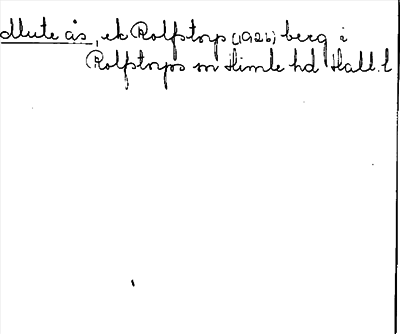 Mute ås, ek Rolfstorps (1926) berg i
Rolfstorps sn Himle hd Hall. l